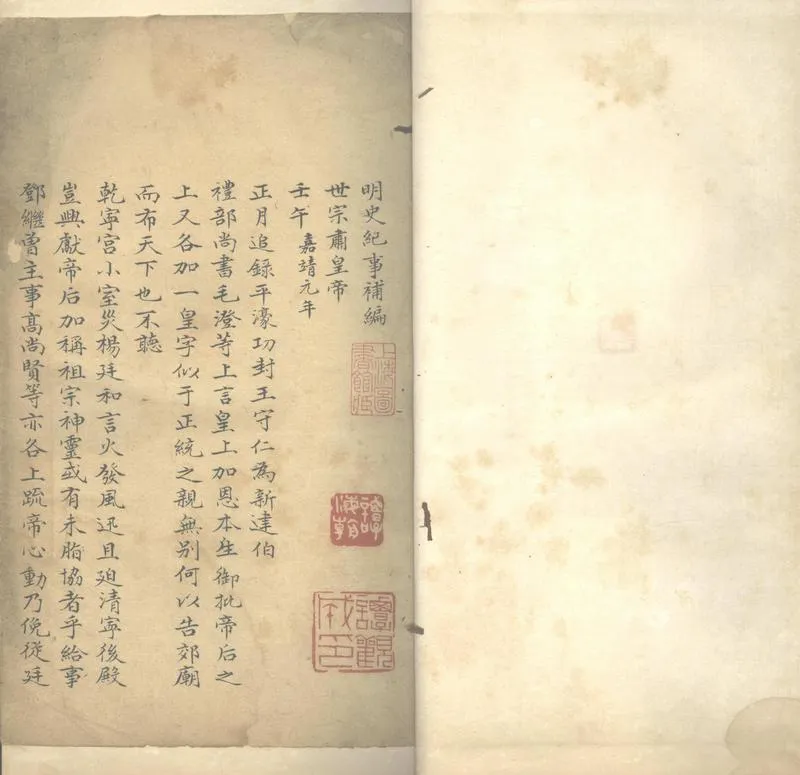 明史紀事補編
世宗肅皇帝
壬午 嘉靖元年
正月追錄平濠功封王守仁為新建伯
禮部尚書毛澄等上言皇上加恩本生御批帝后之
上又各加一皇字似于正統之親無別何以告郊廟
而布天下也不聽
乾寧宮小室災楊廷和言火發風迅且廹清寧後殿
豈興獻帝后加稱祖宗神靈或有未脂協者乎給事
鄧繼曾主事高尚賢等亦各上疏帝心動乃俛從廷
上海圖
書館